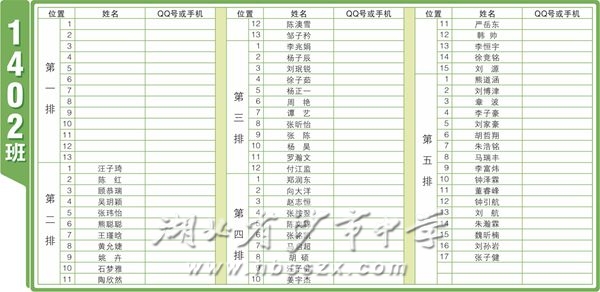 1402班
位置 姓名 QQ号或手机
第一排
1
2
3
4
5
6
7
8
9
10
11
12
13
第二排
1 汪子琦
2 陈 红
3 顾恭瑞
4 吴玥颖
5 张玮怡
6 熊聪聪
7 王瑾晗
8 黄允婕
9 姚 卉
10 石梦雅
11 陶欣然
位置 姓名 QQ号或手机
12 陈澳雪
13 邹子矜
第三排
1 李兆娟
2 杨子辰
3 刘珉锐
4 徐子茹
5 杨正一
6 周 艳
7 谭 艺
8 张昕怡
9 张 陈
10 杨 昊
11 罗瀚文
12 付江监
第四排
1 郑润东
2 向大洋
3 赵志恒
4
5
6
7
8 胡 硕
9
10 姜宇杰
位置 姓名 QQ号或手机
11 严岳东
12 韩 帅
13 李恒宇
14 徐竞铭
15 刘 源
第五排
1 熊道涵
2 刘博津
3 章 波
4 李子豪
5 刘家豪
6 胡哲翔
7 朱浩铭
8 马瑞丰
9 李富炜
10 钟泽霖
11 董睿峰
12 钟引航
13 刘 航
14 朱瀚霖
15 魏昕楠
16 刘孙岩
17 张子健
湖北省沙市中学
www.hbsszx.com